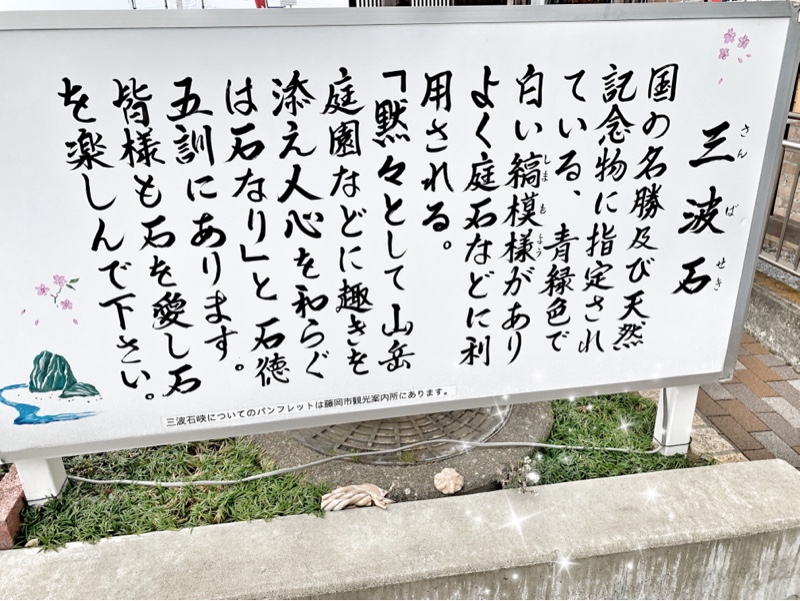 三波石
さんばせき
国の名勝及び天然
記念物に指定され
ている、青緑色で
白い縞模様があり
しまもよう
よく庭石などに利
用される。
「黙々として山岳
庭園などに趣きを
添え人心を和らぐ
は石なり」と石徳
五訓にあります。
皆様も石を愛し石
を楽しんで下さい。
三波石峡についてのパンフレットは藤岡市観光案内所にあります。